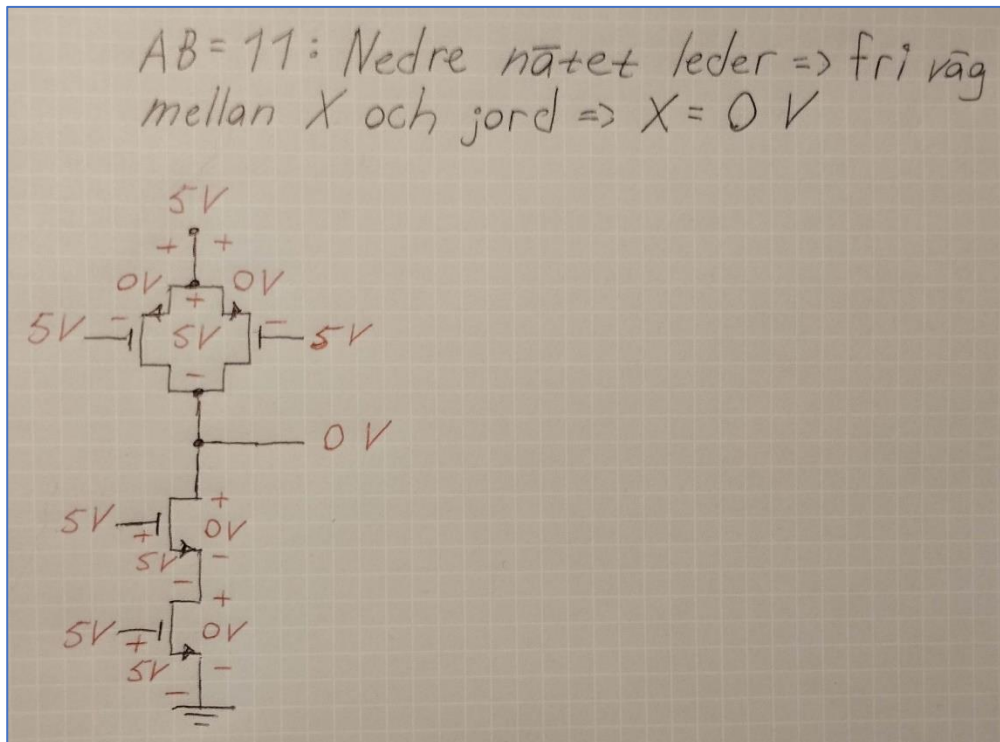 AB = 11 : Nedre nätet leder => fri väg
mellan X och jord => X = 0 V
5V
+ +
0V 0V
+
5V - 5V - 5V
-
0 V
+
5V + 0V
5V -
-
+
5V + 0V
5V -
-